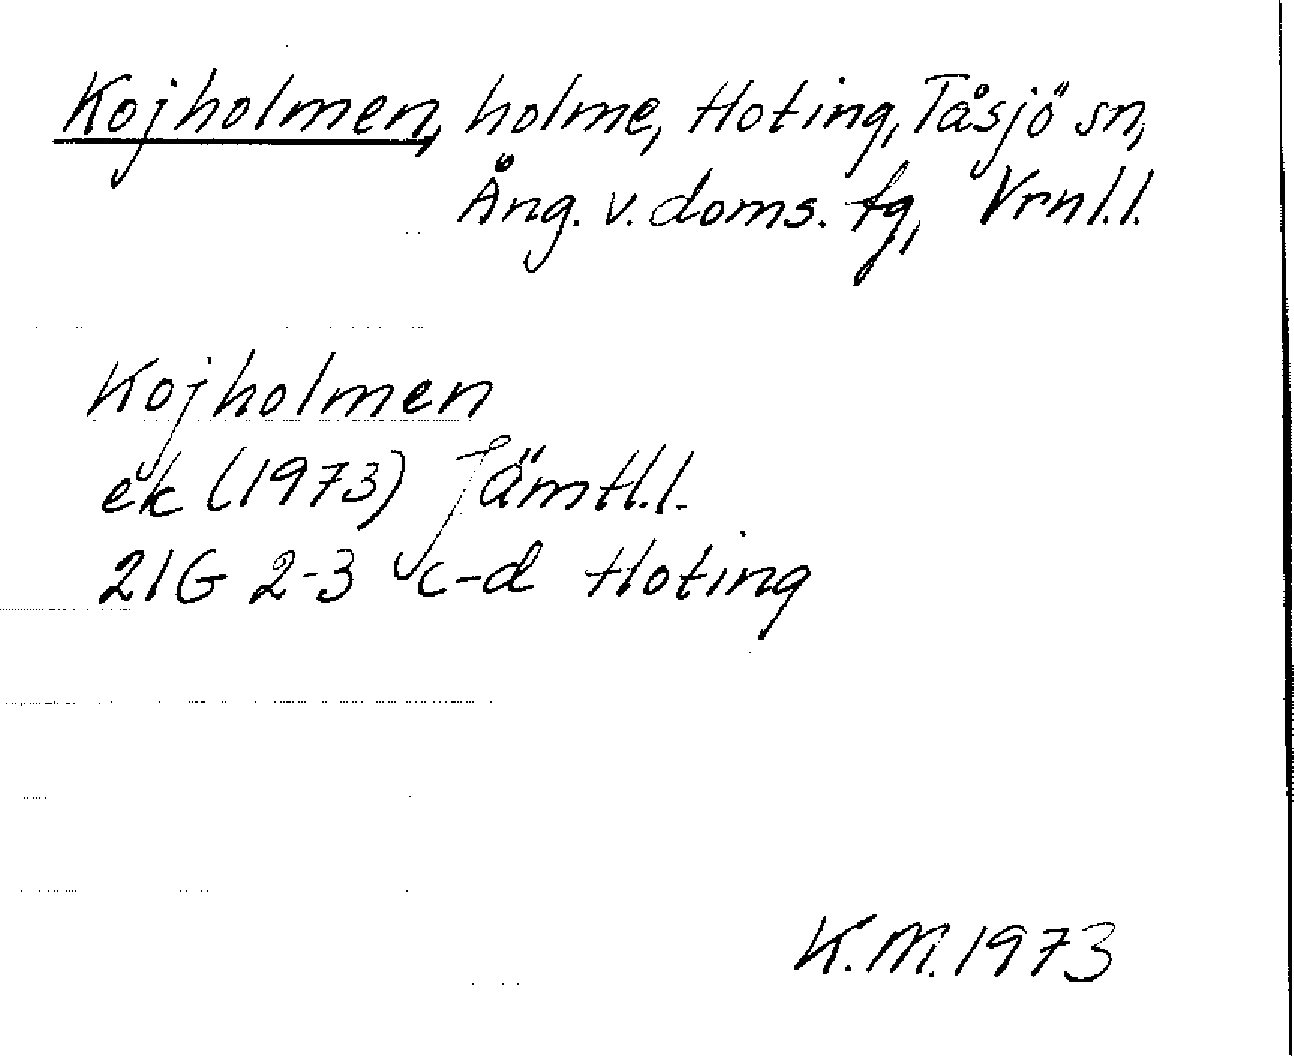 Kojholmen, holme, Hoting, Tåsjö sn,
Ång. v. doms. fg, Vrnl.l.
Kojholmen
ek (1973) Jämtl.l.
21G 2-3 c-d Hoting
K.M. 1973